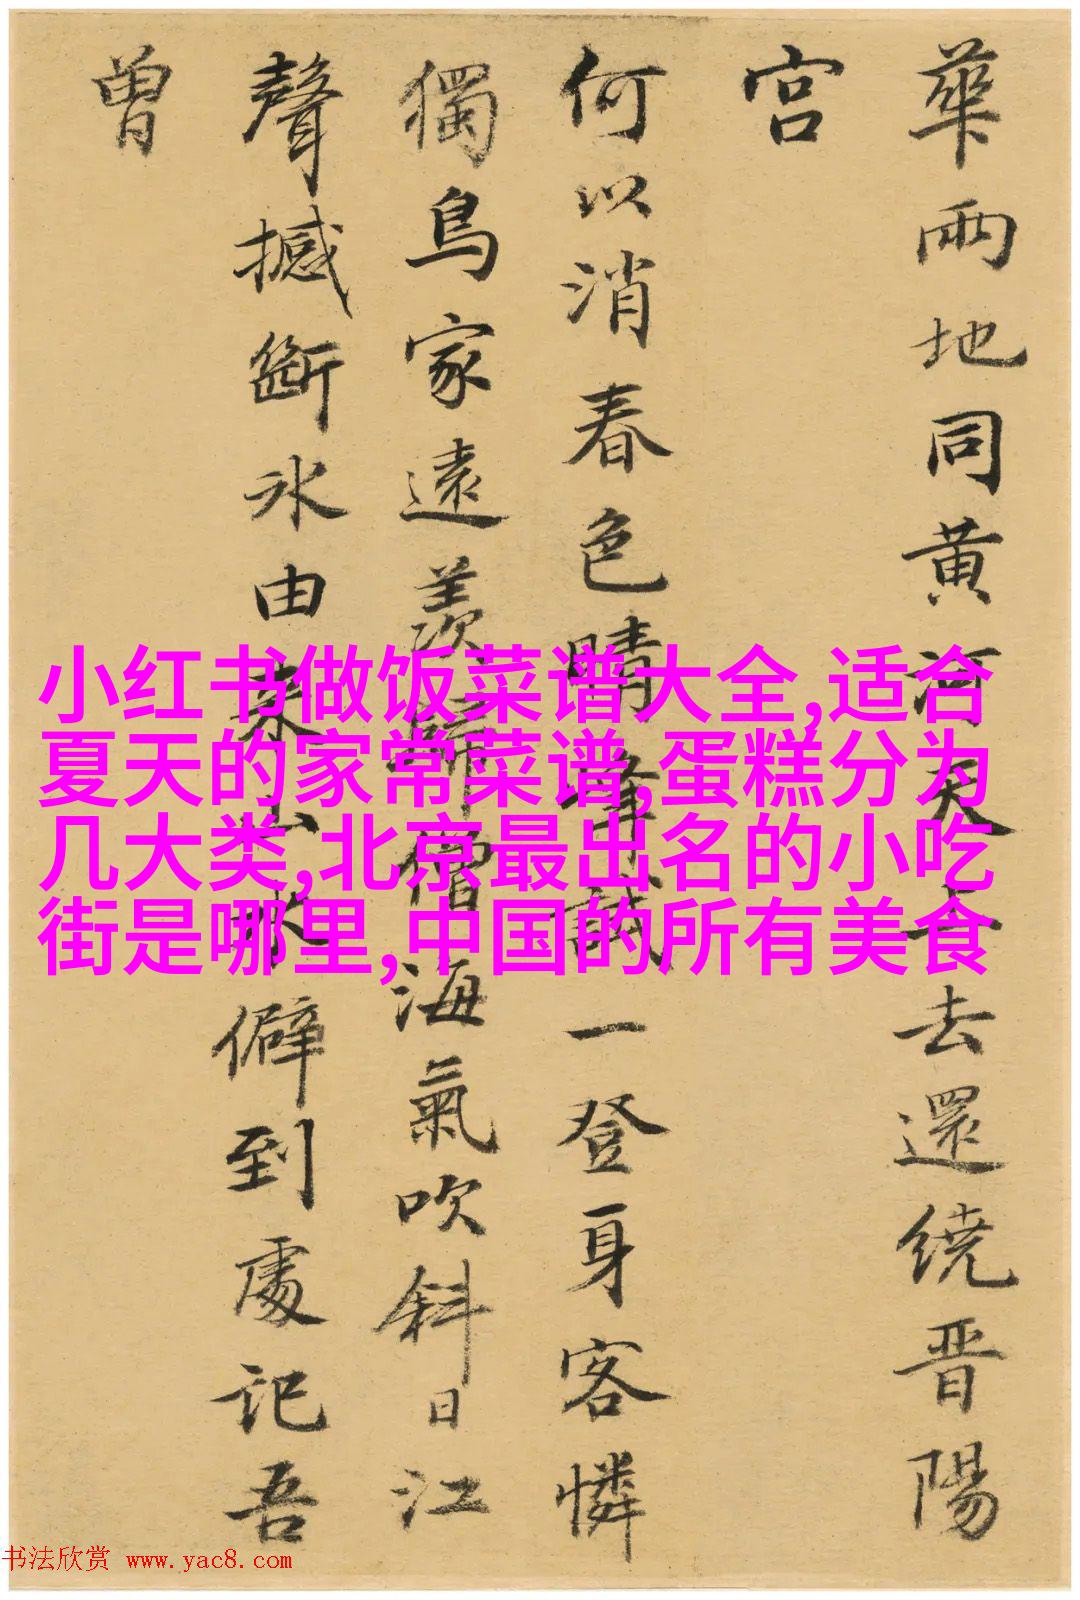 華兩地同黄河天上去還繞晋陽
宫
何以消春色晴峰試一登身客憐
獨鳥家遠羡歸僧海氣吹斜日江
聲撼斷冰由来山水僻到處記吾
曾
小红书做饭菜谱大全,适合
夏天的家常菜谱,蛋糕分为
几大类,北京最出名的小吃
街是哪里,中国的所有美食
书法欣赏 www.yac8.com